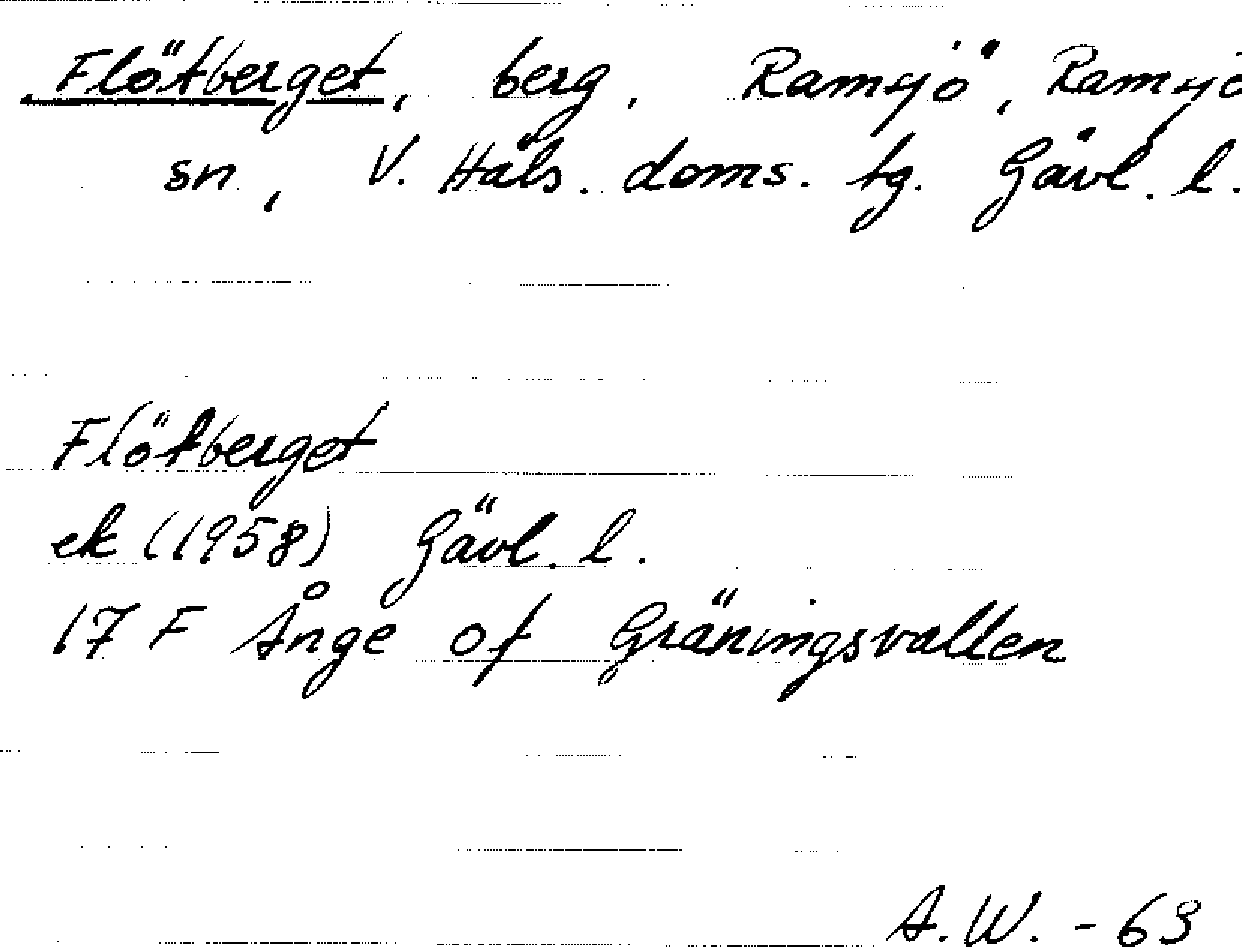 Flötberget, berg, Ramsjö, Ramsjö
sn, V. Häls. doms. tg. Gävl. l.
Flötberget
ek (1958) Gävl. l.
17 F Ånge of Gräningsvallen
A.W. - 63